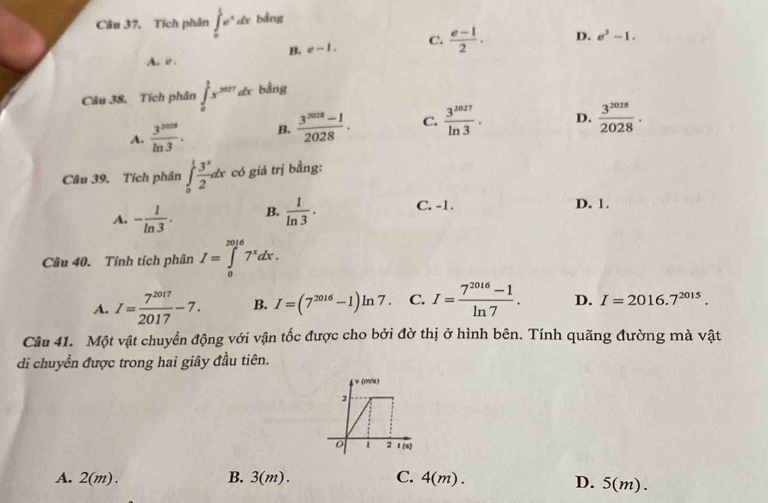 Câu 37. Tích phân $\int_0^1 e^x dx$ bằng
A. $e$. B. $e-1$. C. $\frac{e-1}{2}$. D. $e^2-1$.
Câu 38. Tích phân $\int_0^3 x^{2027} dx$ bằng
A. $\frac{3^{2028}}{\ln 3}$. B. $\frac{3^{2028}-1}{2028}$. C. $\frac{3^{2027}}{\ln 3}$. D. $\frac{3^{2028}}{2028}$.
Câu 39. Tích phân $\int_0^1 \frac{3^x}{2} dx$ có giá trị bằng:
A. $-\frac{1}{\ln 3}$. B. $\frac{1}{\ln 3}$. C. -1. D. 1.
Câu 40. Tính tích phân $I = \int_0^{2016} 7^x dx$.
A. $I = \frac{7^{2017}}{2017} - 7$. B. $I = (7^{2016} - 1) \ln 7$. C. $I = \frac{7^{2016} - 1}{\ln 7}$. D. $I = 2016.7^{2015}$.
Câu 41. Một vật chuyển động với vận tốc được cho bởi đờ thị ở hình bên. Tính quãng đường mà vật
di chuyển được trong hai giây đầu tiên.
v (m/s)
2
O 1 2 t (s)
A. 2(m). B. 3(m). C. 4(m). D. 5(m).